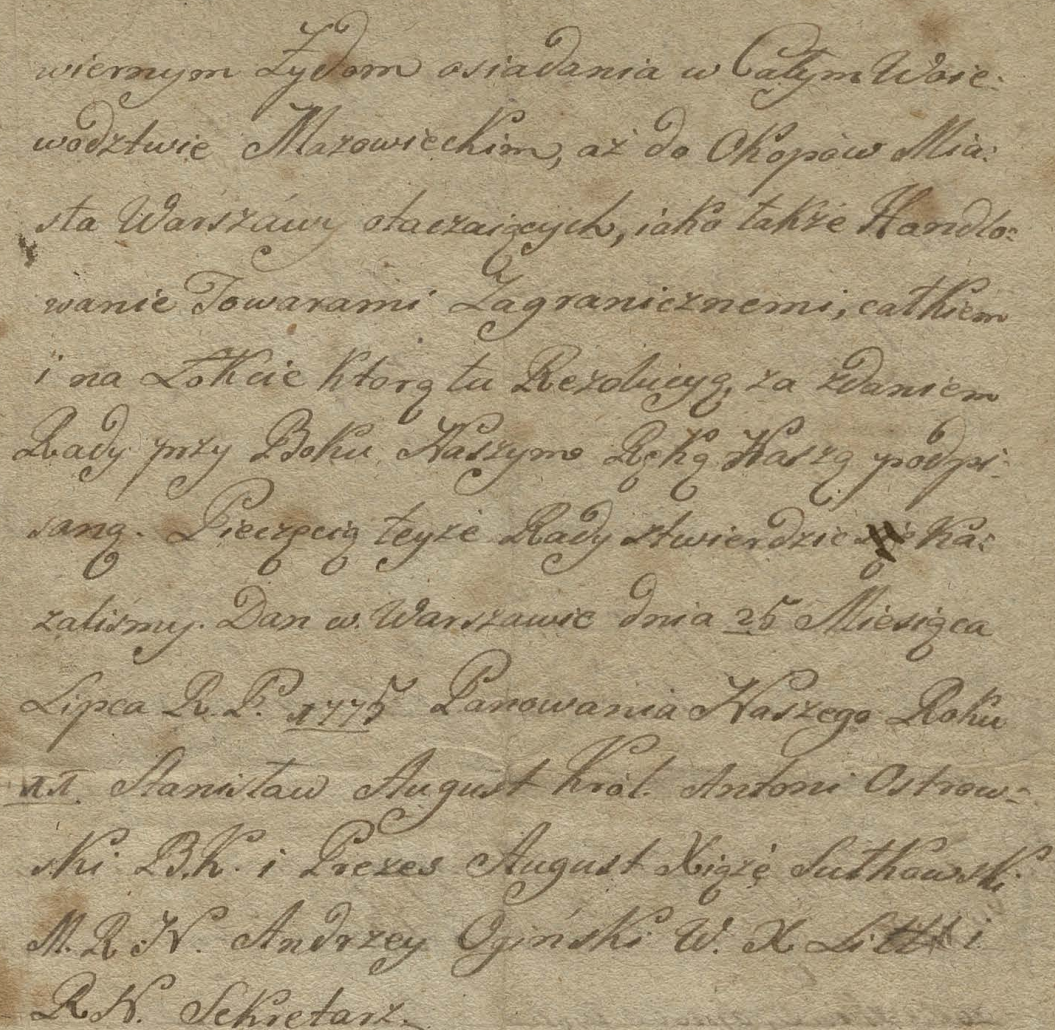 wiernym Żydom osiadania w Całym Woie-
wodztwie Mazowieckim, aż do Okopów Mia:
sta Warszáwy otaczaiących, iako także Handlo:
wanie Towarami Zagranicznemi, całkiem
i na Łokcie którą tu Rezolucyą, za zdaniem
Rady przy Boku Naszym Ręką Naszą podpi-
saną. Pieczęcią teyże Rady stwierdzić Ka:
zaliśmy. Dan w Warszawie dnia 25 Miesiąca
Lipca R. P. 1775 Panowania Naszego Roku
11. Stanisław August Król. Antoni Ostrow-
ski B.K. i Prezes August Xiążę Sułkowski
M. R N. Andrzey Ogiński W. X Litt i
R N. Sekretarz.